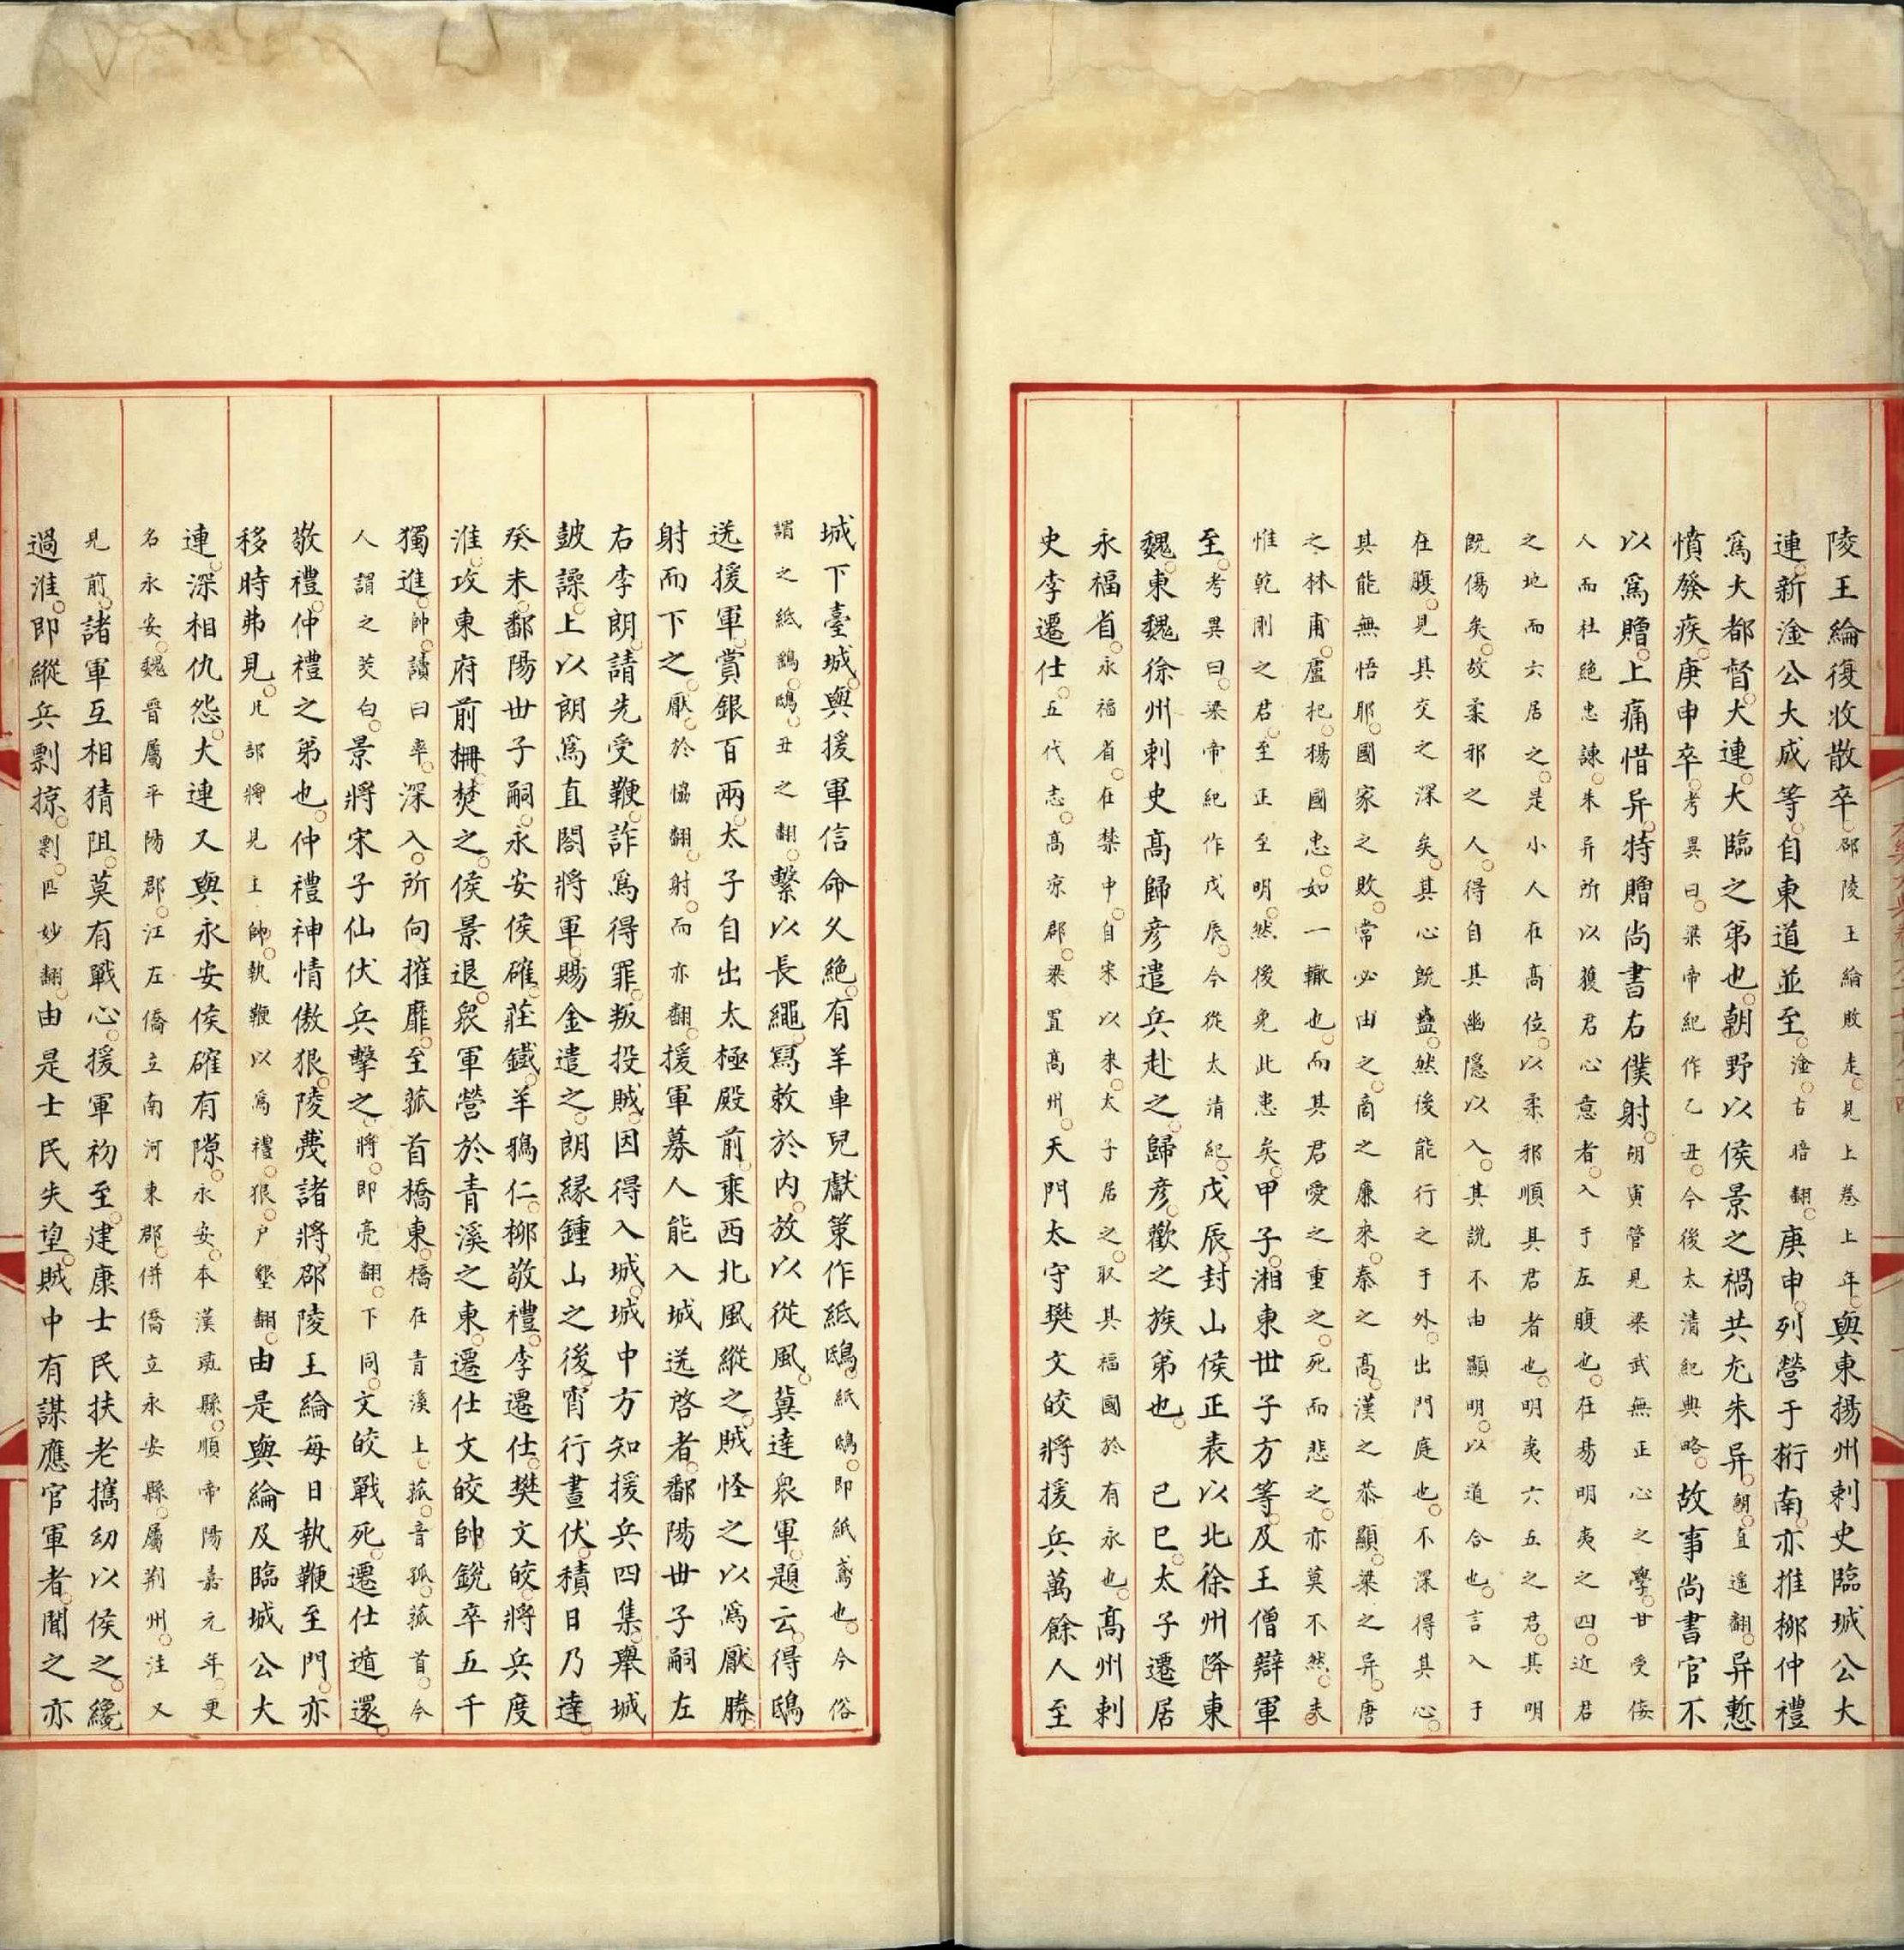 陵王綸復收散卒邵陵王綸敗走見上卷上年與東揚州刺史臨城公大
連新淦公大成等自東道並至淦古暗翻庚申列營于桁南亦推柳仲禮
爲大都督大連大臨之弟也朝野以侯景之禍共尤朱异朝直遥翻异慙
憤發疾庚申卒考異曰梁帝紀作乙丑今後太清紀典略故事尚書官不
以爲贈上痛惜异特贈尚書右僕射胡寅管見梁武無正心之學甘受佞
人而杜絶忠諫朱异所以獲君心意者入于左腹也在易明夷之四近君
之地而六居之是小人在高位以柔邪順其君者也明夷六五之君其明
旣傷矣故柔邪之人得自其幽隱以入其說不由顯明以道合也言入于
在腹見其交之深矣其心旣蠱然後能行之于外出門庭也不深得其心
其能無悟耶國家之敗常必由之商之廉來秦之高漢之恭顯梁之异唐
之林甫盧杞楊國忠如一轍也而其君愛之重之死而悲之亦莫不然未
惟乾剛之君至正至明然後免此患矣甲子湘東世子方等及王僧辯軍
至考異曰梁帝紀作戊辰今從太清紀戊辰封山侯正表以北徐州降東
魏東魏徐州刺史高歸彦遣兵赴之歸彦歡之族弟也 己巳太子遷居
永福省永福省在禁中自宋以來太子居之取其福國於有永也高州刺
史李遷仕五代志高凉郡梁置高州天門太守樊文皎將援兵萬餘人至
城下臺城與援軍信命久絶有羊車兒獻策作紙鴟紙鴟即紙鳶也今俗
謂之紙鷂鴟丑之翻繫以長繩寫敕於内放以從風冀達衆軍題云得鴟
送援軍賞銀百兩太子自出太極殿前乘西北風縱之賊怪之以爲厭勝
射而下之厭於恊翻射而亦翻援軍募人能入城送啓者鄱陽世子嗣左
右李朗請先受鞭詐爲得罪叛投賊因得入城城中方知援兵四集舉城
鼓譟上以朗爲直閤將軍賜金遣之朗縁鍾山之後宵行晝伏積日乃達
癸未鄱陽世子嗣永安侯確莊鐵羊鴉仁柳敬禮李遷仕樊文皎將兵度
淮攻東府前柵焚之侯景退衆軍營於青溪之東遷仕文皎帥銳卒五千
獨進帥讀曰率深入所向摧靡至菰首橋東橋在青溪上菰音孤菰首今
人謂之茭白景將宋子仙伏兵擊之將即亮翻下同文皎戰死遷仕遁還
敬禮仲禮之弟也仲禮神情傲狠陵蔑諸將邵陵王綸每日執鞭至門亦
移時弗見凡部將見主帥執鞭以爲禮狠户墾翻由是與綸及臨城公大
連深相仇怨大連又與永安侯確有隙永安本漢彘縣順帝陽嘉元年更
名永安魏晉屬平陽郡江左僑立南河東郡併僑立永安縣屬荆州注又
見前諸軍互相猜阻莫有戰心援軍初至建康士民扶老攜幼以侯之纔
過淮即縱兵剽掠剽匹妙翻由是士民失望賊中有謀應官軍者聞之亦